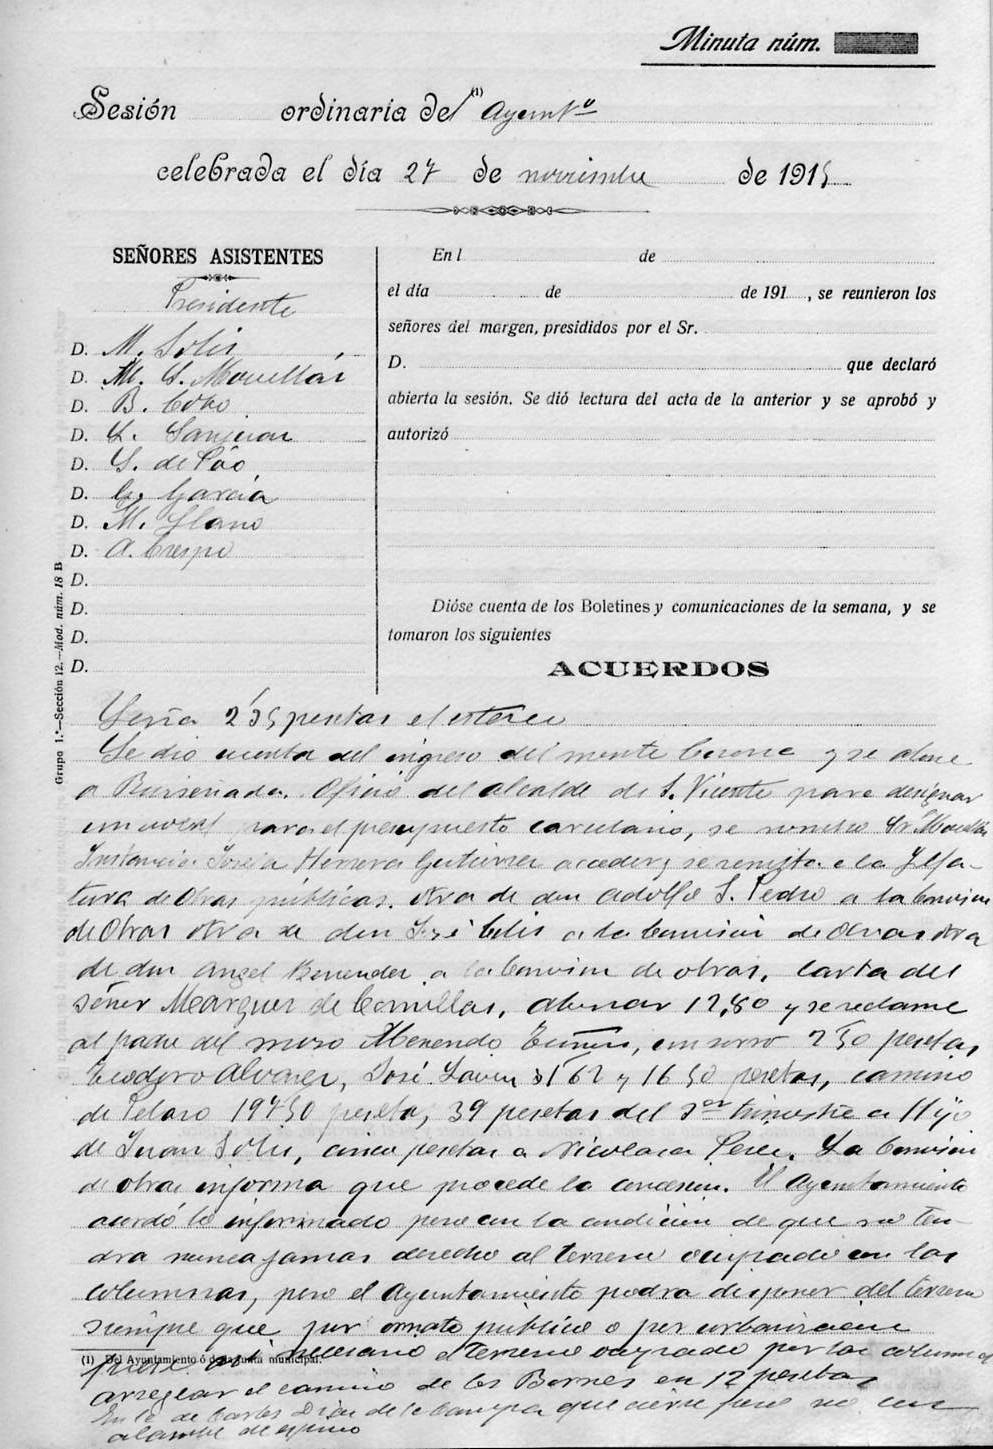 Minuta núm.
Sesión ordinaria del (1) Ayuntº
celebrada el día 27 de noviembre de 1915
SEÑORES ASISTENTES
Presidente
D. M. Solis
D. M. S. Movellán
D. B. Cobo
D. L. Sanjuan
D. S. de Cão
D. C. García
D. M. Llano
D. A. Crespo
D.
D.
D.
D.
Grupo 1.º—Sección 12.—Mod. núm. 18 B
En l de
el día de de 191 , se reunieron los
señores del margen, presididos por el Sr.
D. que declaró
abierta la sesión. Se dió lectura del acta de la anterior y se aprobó y
autorizó
Dióse cuenta de los Boletines y comunicaciones de la semana, y se
tomaron los siguientes
ACUERDOS
pesetas el
Se dio cuenta del ingreso del monte Corona y se abone
a Oficio del alcalde de S. Vicente para designar
un vocal para el presupuesto carcelario, se nombro Sr. Movellán
Instancia Herrera Gutierrez acceder y se remita a la Jefa-
tura de Obras públicas. otra de don Adolfo S. Pedro a la Comision
de Obras otra de don José Celis a la Comision de Obras otra
de don Angel a la Comision de obras. Carta del
señor Marques de Comillas, abonar 12,80 y se reclame
al padre del mozo un socorro 2 50 pesetas
Teodoro Alvarez, José 62 y 16 50 pesetas, camino
de 50 pesetas, 39 pesetas del 3er trimestre a Hijo
de Juan Solis, cinco pesetas a Nicolasa Perez. La Comision
de obras informa que procede la concesion. El Ayuntamiento
acordó lo informado pero con la condicion de que no ten-
dra nunca jamas derecho al terreno ocupado con las
columnas, pero el Ayuntamiento podra disponer del terreno
siempre que por ornato publico o por urbanizacion
fuese necesario el terreno ocupado por las columnas
(1) Del Ayuntamiento ó de la Junta municipal.
arreglar el camino de los en 12 pesetas
de Carlos Diaz de la Campa que cierre pero no con
alambre de espino